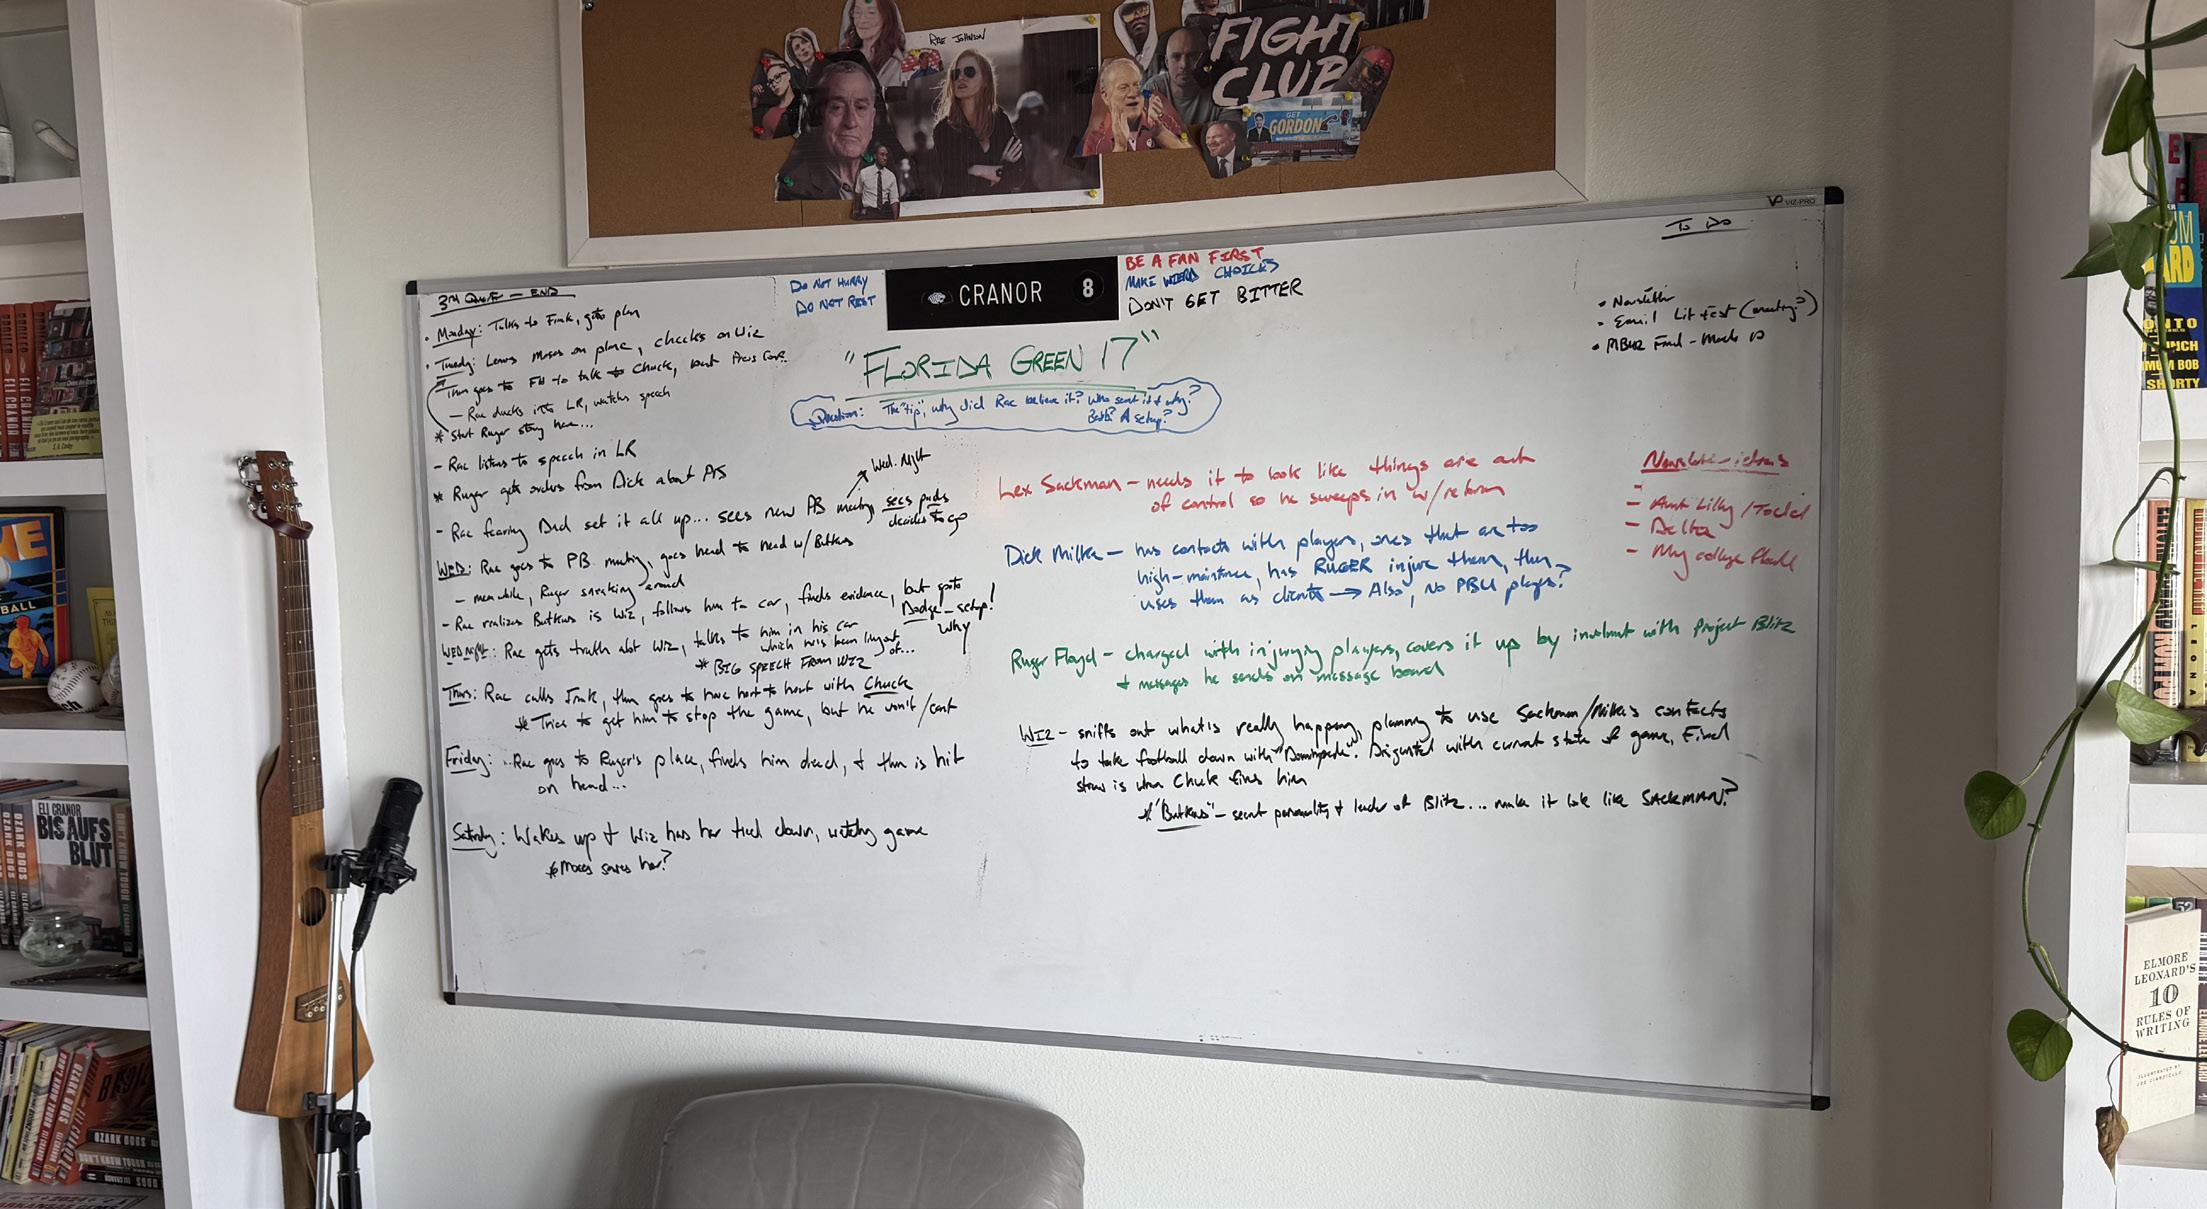 RAE JOHNSON
FIGHT
CLUB
GET
GORDON
VIZ-PRO
To Do
• Newsletter
• Email Lit fest (meeting?)
DO NOT HURRY
DO NOT REST
CRANOR 8
BE A FAN FIRST
MAKE WIERD CHOICES
DON'T GET BITTER
"FLORIDA GREEN 17"
Question: The "tip", why did Rae believe it? Who sent it & why?
A setup?
3rd Quarter — END
• Monday: Talks to Frank, gets plan
• Tuesday: Leaves Moses on plane, checks on Wiz
Then goes to FH to talk to Chuck, but Press Conf.
— Rae ducks into LR, watches speech
* Start Ruger story here...
- Rae listens to speech in LR
* Ruger gets orders from Dick about
- Rae fearing Dad set it all up... sees new PB meeting, sees pads
decides to go
Wed. Night
WED: Rae goes to PB meeting, goes head to head w/ Butkus
- meanwhile, Ruger sneaking around
- Rae realizes Butkus is Wiz, follows him to car, finds evidence, but gets
Dodge! - setup!
Why
WED Night: Rae gets truth abt Wiz, talks to him in his car
which he's been living out of...
* BIG SPEECH FROM WIZ
Thurs: Rae calls Frank, then goes to have heart to heart with Chuck
* Tries to get him to stop the game, but he won't/can't
Friday: ..Rae goes to Ruger's place, finds him dead, & then is hit
on head...
Saturday: Wakes up & Wiz has her tied down, watching game
* Moses saves her?
Lex Sackman — needs it to look like things are out
of control so he sweeps in w/ reform
Dick Miller — has contacts with players, ones that are too
high-maintence, has RUGER injure them, then
uses them as clients → Also, no PBU players?
Ruger Floyd — charged with injurying players, covers it up by involvment with Project Blitz
+ messages he sends on message board
WIZ — sniffs out what is really happening, planning to use Sackman/Miller's contacts
to take football down with Disgusted with current state of game, Final
straw is when Chuck fires him
* "Butkus" — secret personality & leader of Blitz... make it look like SACKMAN?
Newsletter ideas
-
- Aunt Lilly /
- Delta
- My college
ELI CRANOR
BIS AUFS
BLUT
OZARK DOGS
DON'T KNOW TOUGH
ELMORE
LEONARD'S
10
RULES OF
WRITING